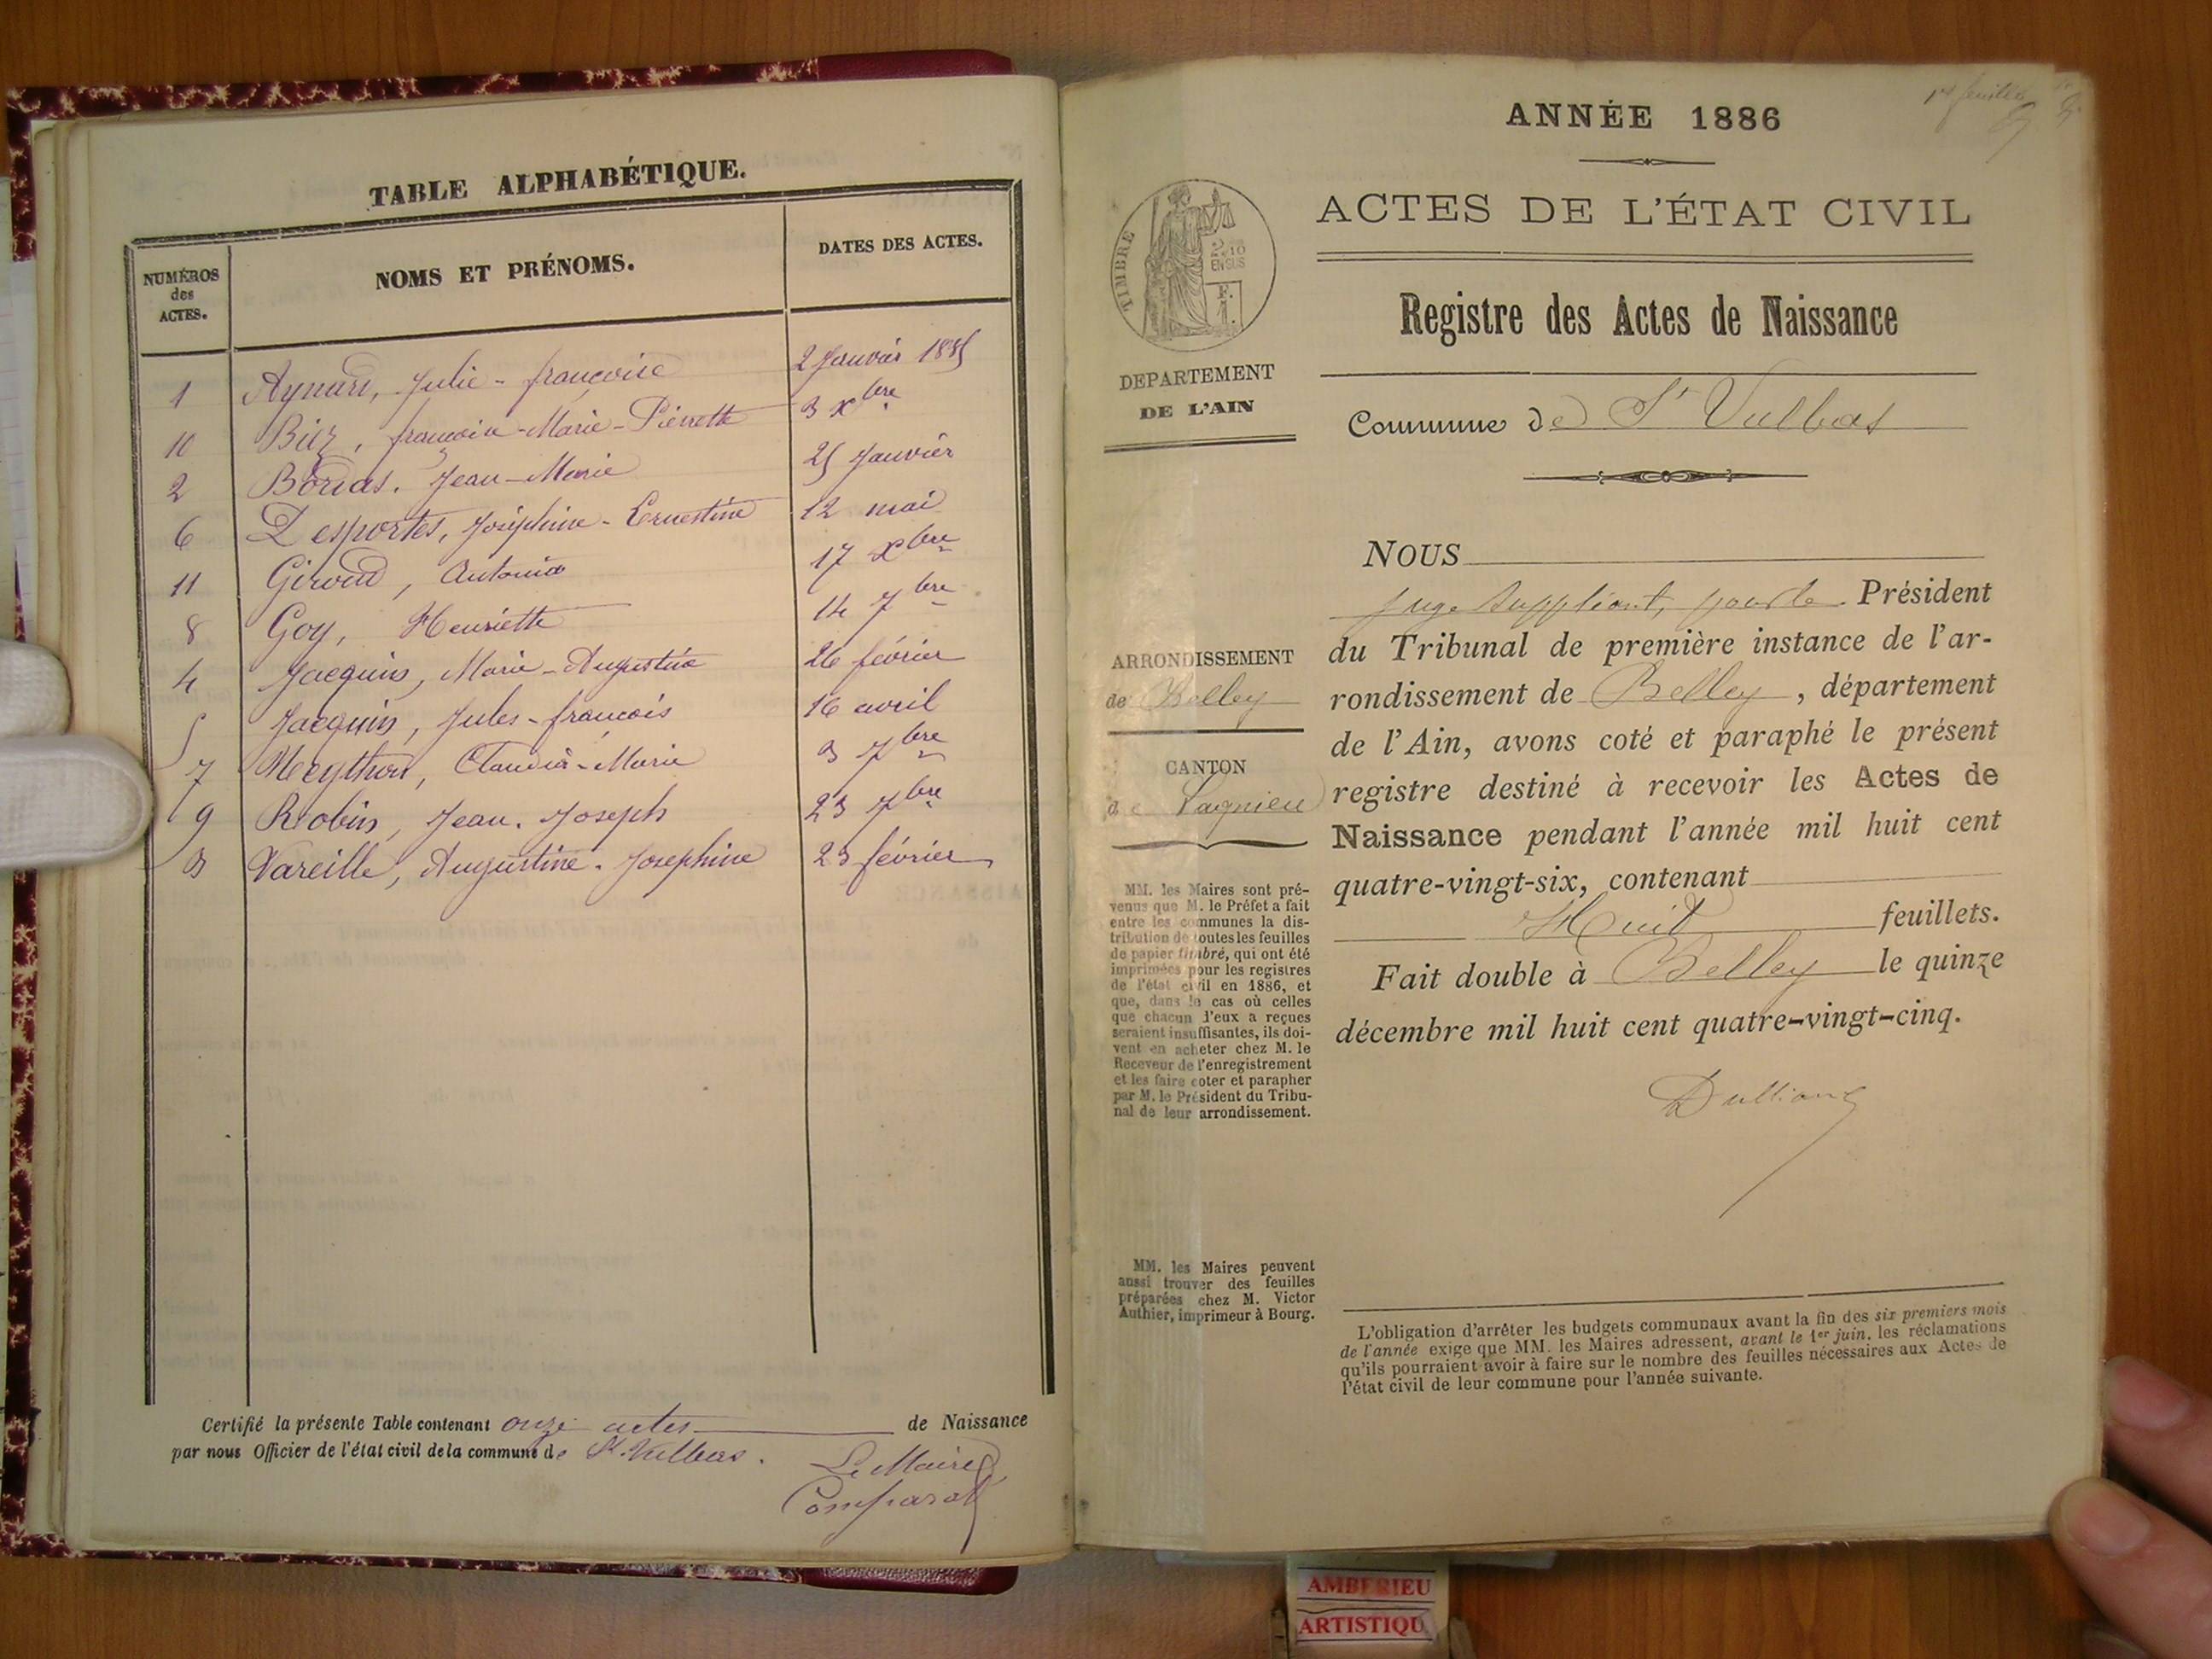 TABLE ALPHABÉTIQUE.
NUMÉROS
des
ACTES.
NOMS ET PRÉNOMS.
DATES DES ACTES.
1 Aynard, Julie-françoise 2 Janvier 1885
10 françoise-Marie-Pierrette 3 xbre
2 Bordas, Jean-Marie 25 Janvier
6 Desportes, Joséphine-Ernestine 12 mai
11 Giroud, Antonia 17 xbre
8 Goy, Henriette 14 7bre
4 Jacquin, Marie-Augustine 26 février
5 Jacquin, Jules-françois 16 avril
7 Claudia-Marie 3 7bre
9 Robin, Jean-Joseph 23 7bre
3 Vareille, Augustine-Josephine 23 février
Certifié la présente Table contenant onze actes de Naissance
par nous Officier de l'état civil de la commune de St Vulbas.
Le Maire
Comparat
1er feuillet
ANNÉE 1886
ACTES DE L'ÉTAT CIVIL
TIMBRE
2/10
EN SUS
Registre des Actes de Naissance
DEPARTEMENT
DE L'AIN
Commune de St Vulbas
NOUS
juge suppléant, pour le Président
du Tribunal de première instance de l'ar-
rondissement de Belley, département
de l'Ain, avons coté et paraphé le présent
registre destiné à recevoir les Actes de
Naissance pendant l'année mil huit cent
quatre-vingt-six, contenant
Huit feuillets.
Fait double à Belley le quinze
décembre mil huit cent quatre-vingt-cinq.
ARRONDISSEMENT
de Belley
CANTON
de Lagnieu
MM. les Maires sont pré-
venus que M. le Préfet a fait
entre les communes la dis-
tribution de toutes les feuilles
de papier timbré, qui ont été
imprimées pour les registres
de l'état civil en 1886, et
que, dans le cas où celles
que chacun d'eux a reçues
seraient insuffisantes, ils doi-
vent en acheter chez M. le
Receveur de l'enregistrement
et les faire coter et parapher
par M. le Président du Tribu-
nal de leur arrondissement.
MM. les Maires peuvent
aussi trouver des feuilles
préparées chez M. Victor
Authier, imprimeur à Bourg.
L'obligation d'arrêter les budgets communaux avant la fin des six premiers mois
de l'année exige que MM. les Maires adressent, avant le 1er juin, les réclamations
qu'ils pourraient avoir à faire sur le nombre des feuilles nécessaires aux Actes de
l'état civil de leur commune pour l'année suivante.
AMBERIEU
ARTISTIQU